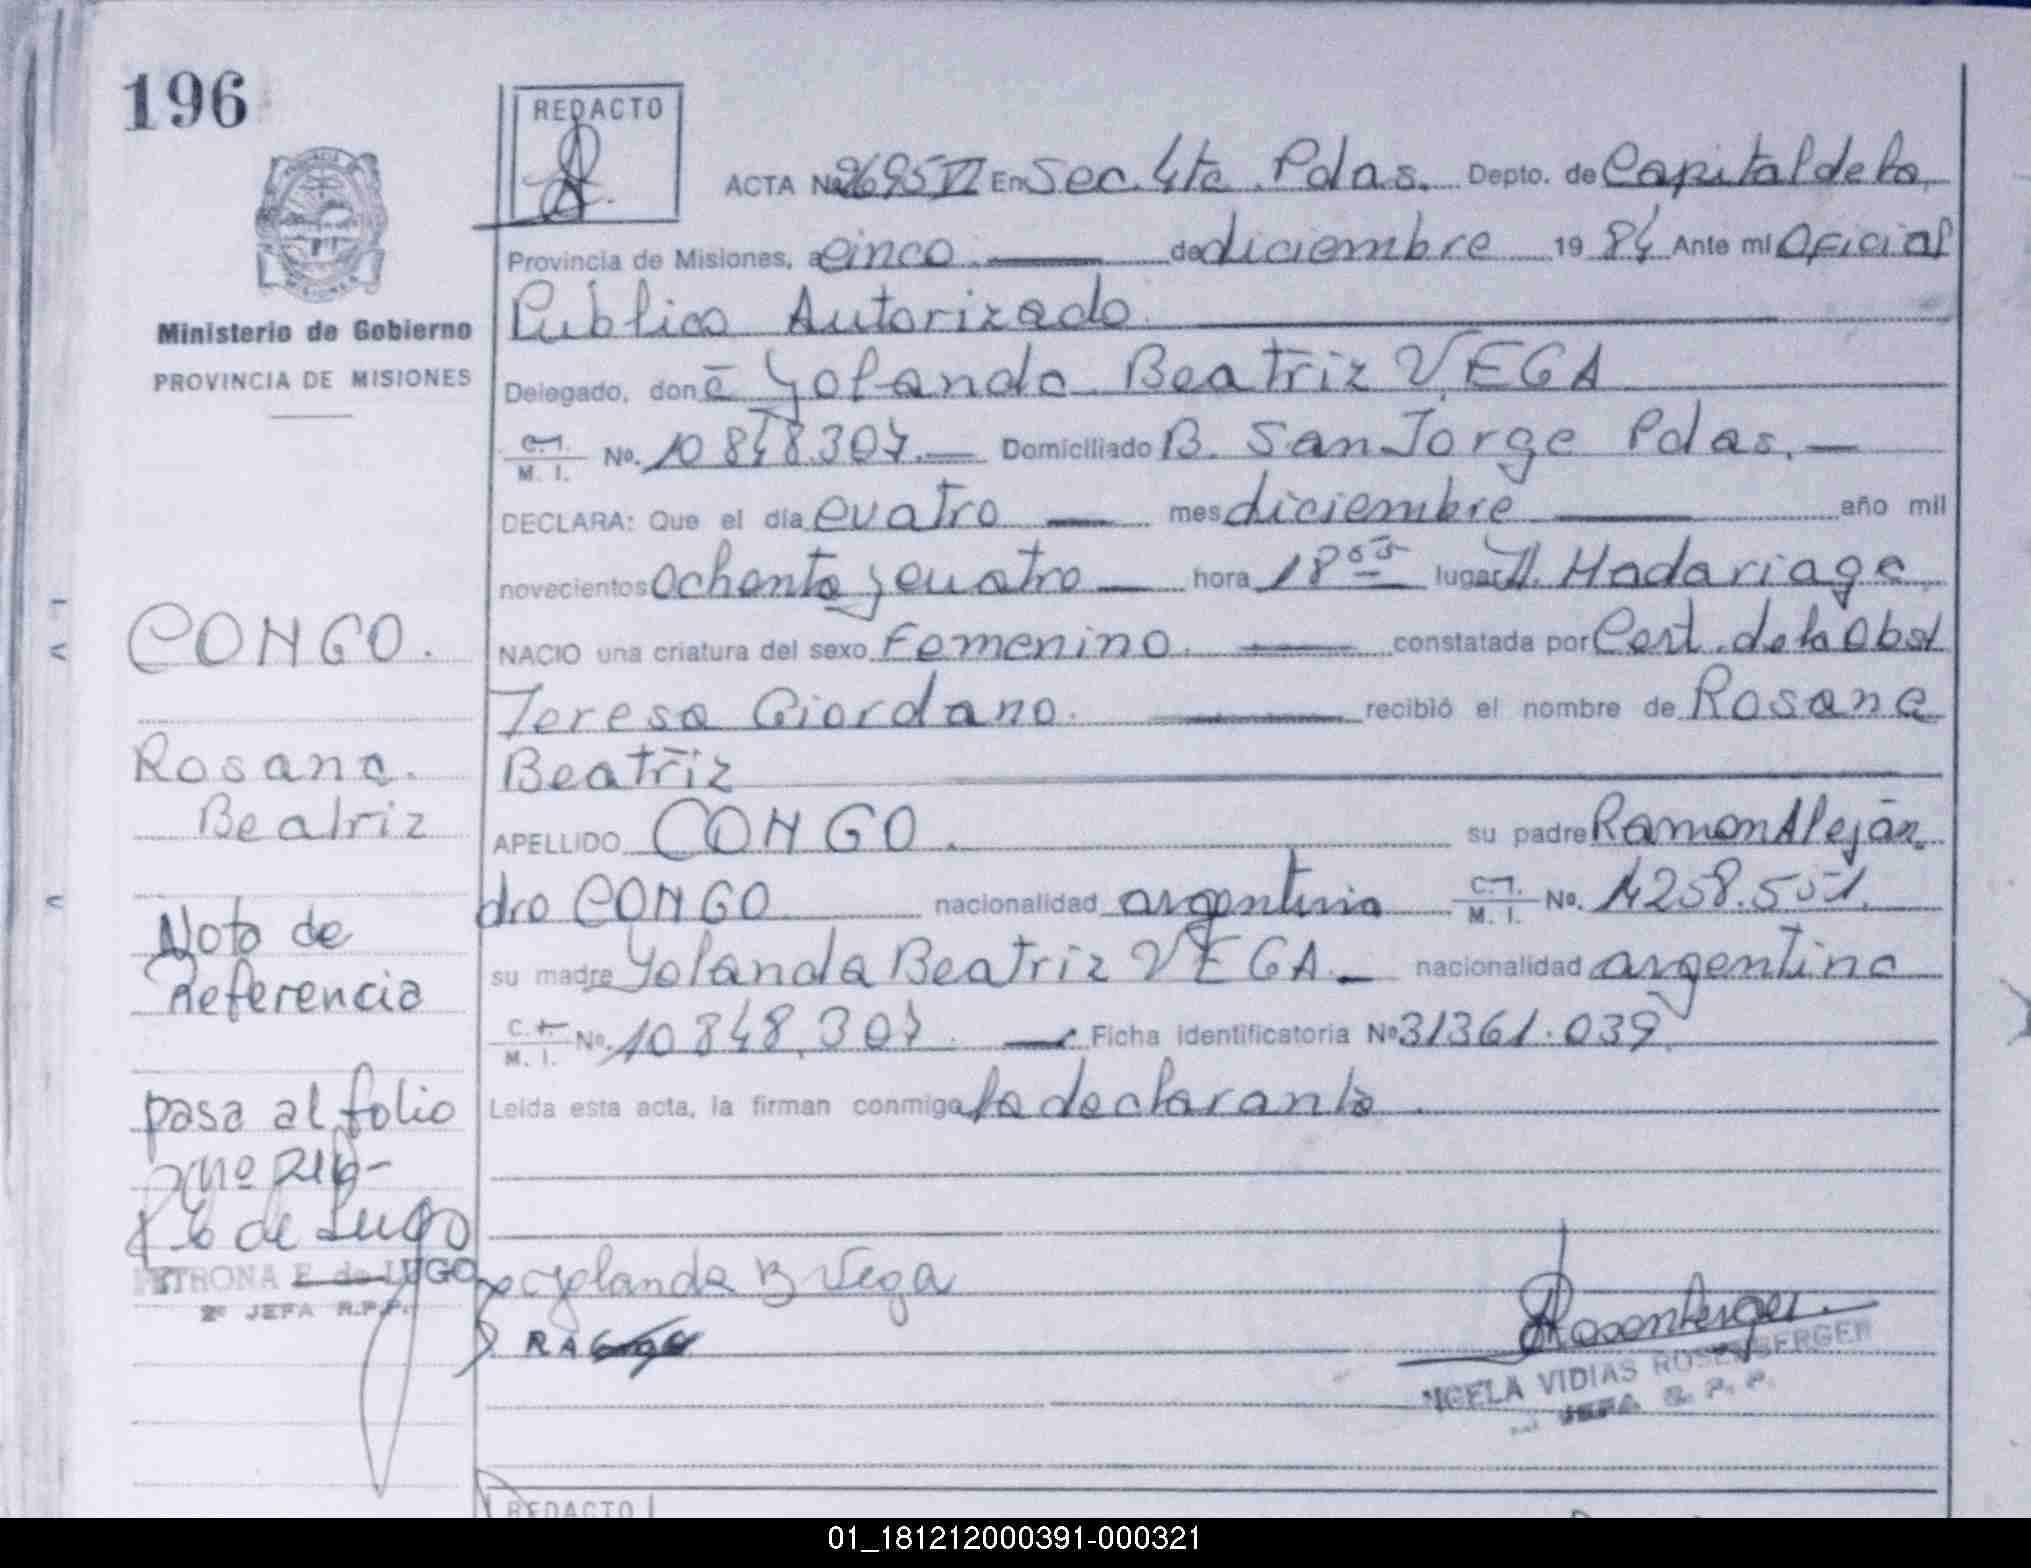 196
REDACTO
ACTA No 2695 VI En Sec. 4ta. Pdas. Depto. de Capital de la
Provincia de Misiones, a cinco de diciembre 19 84 Ante mi Oficial
Publico Autorizado
Ministerio de Gobierno
PROVINCIA DE MISIONES
Delegado, don a Yolanda Beatriz VEGA
C.I. M. I. No. 10848.307.— Domiciliado B. San Jorge Pdas.—
DECLARA: Que el día cuatro — mes diciembre — año mil
novecientos ochenta y cuatro — hora 18 55 lugar H. Madariaga
NACIO una criatura del sexo Femenino. — constatada por Cert. de la Obst
Teresa Giordano. — recibió el nombre de Rosana
Beatriz
APELLIDO CONGO. su padre Ramon Alejan
dro CONGO nacionalidad argentina C.I. M. I. No. 14258.551.
su madre Yolanda Beatriz VEGA.— nacionalidad argentina
C.I. M. I. No. 10848.307. — Ficha identificatoria No 31361.039
Leída esta acta, la firman conmigo la declarante
CONGO.
Rosana.
Beatriz
Nota de
Referencia
pasa al folio
nº 216-
de Lugo
PETRONA E. de LUGO
2ª JEFA R.P.P.
Yolanda B Vega
Rosenberger
ANGELA VIDIAS ROSENBERGER
JEFA R. P. P.
REDACTO
01_181212000391-000321